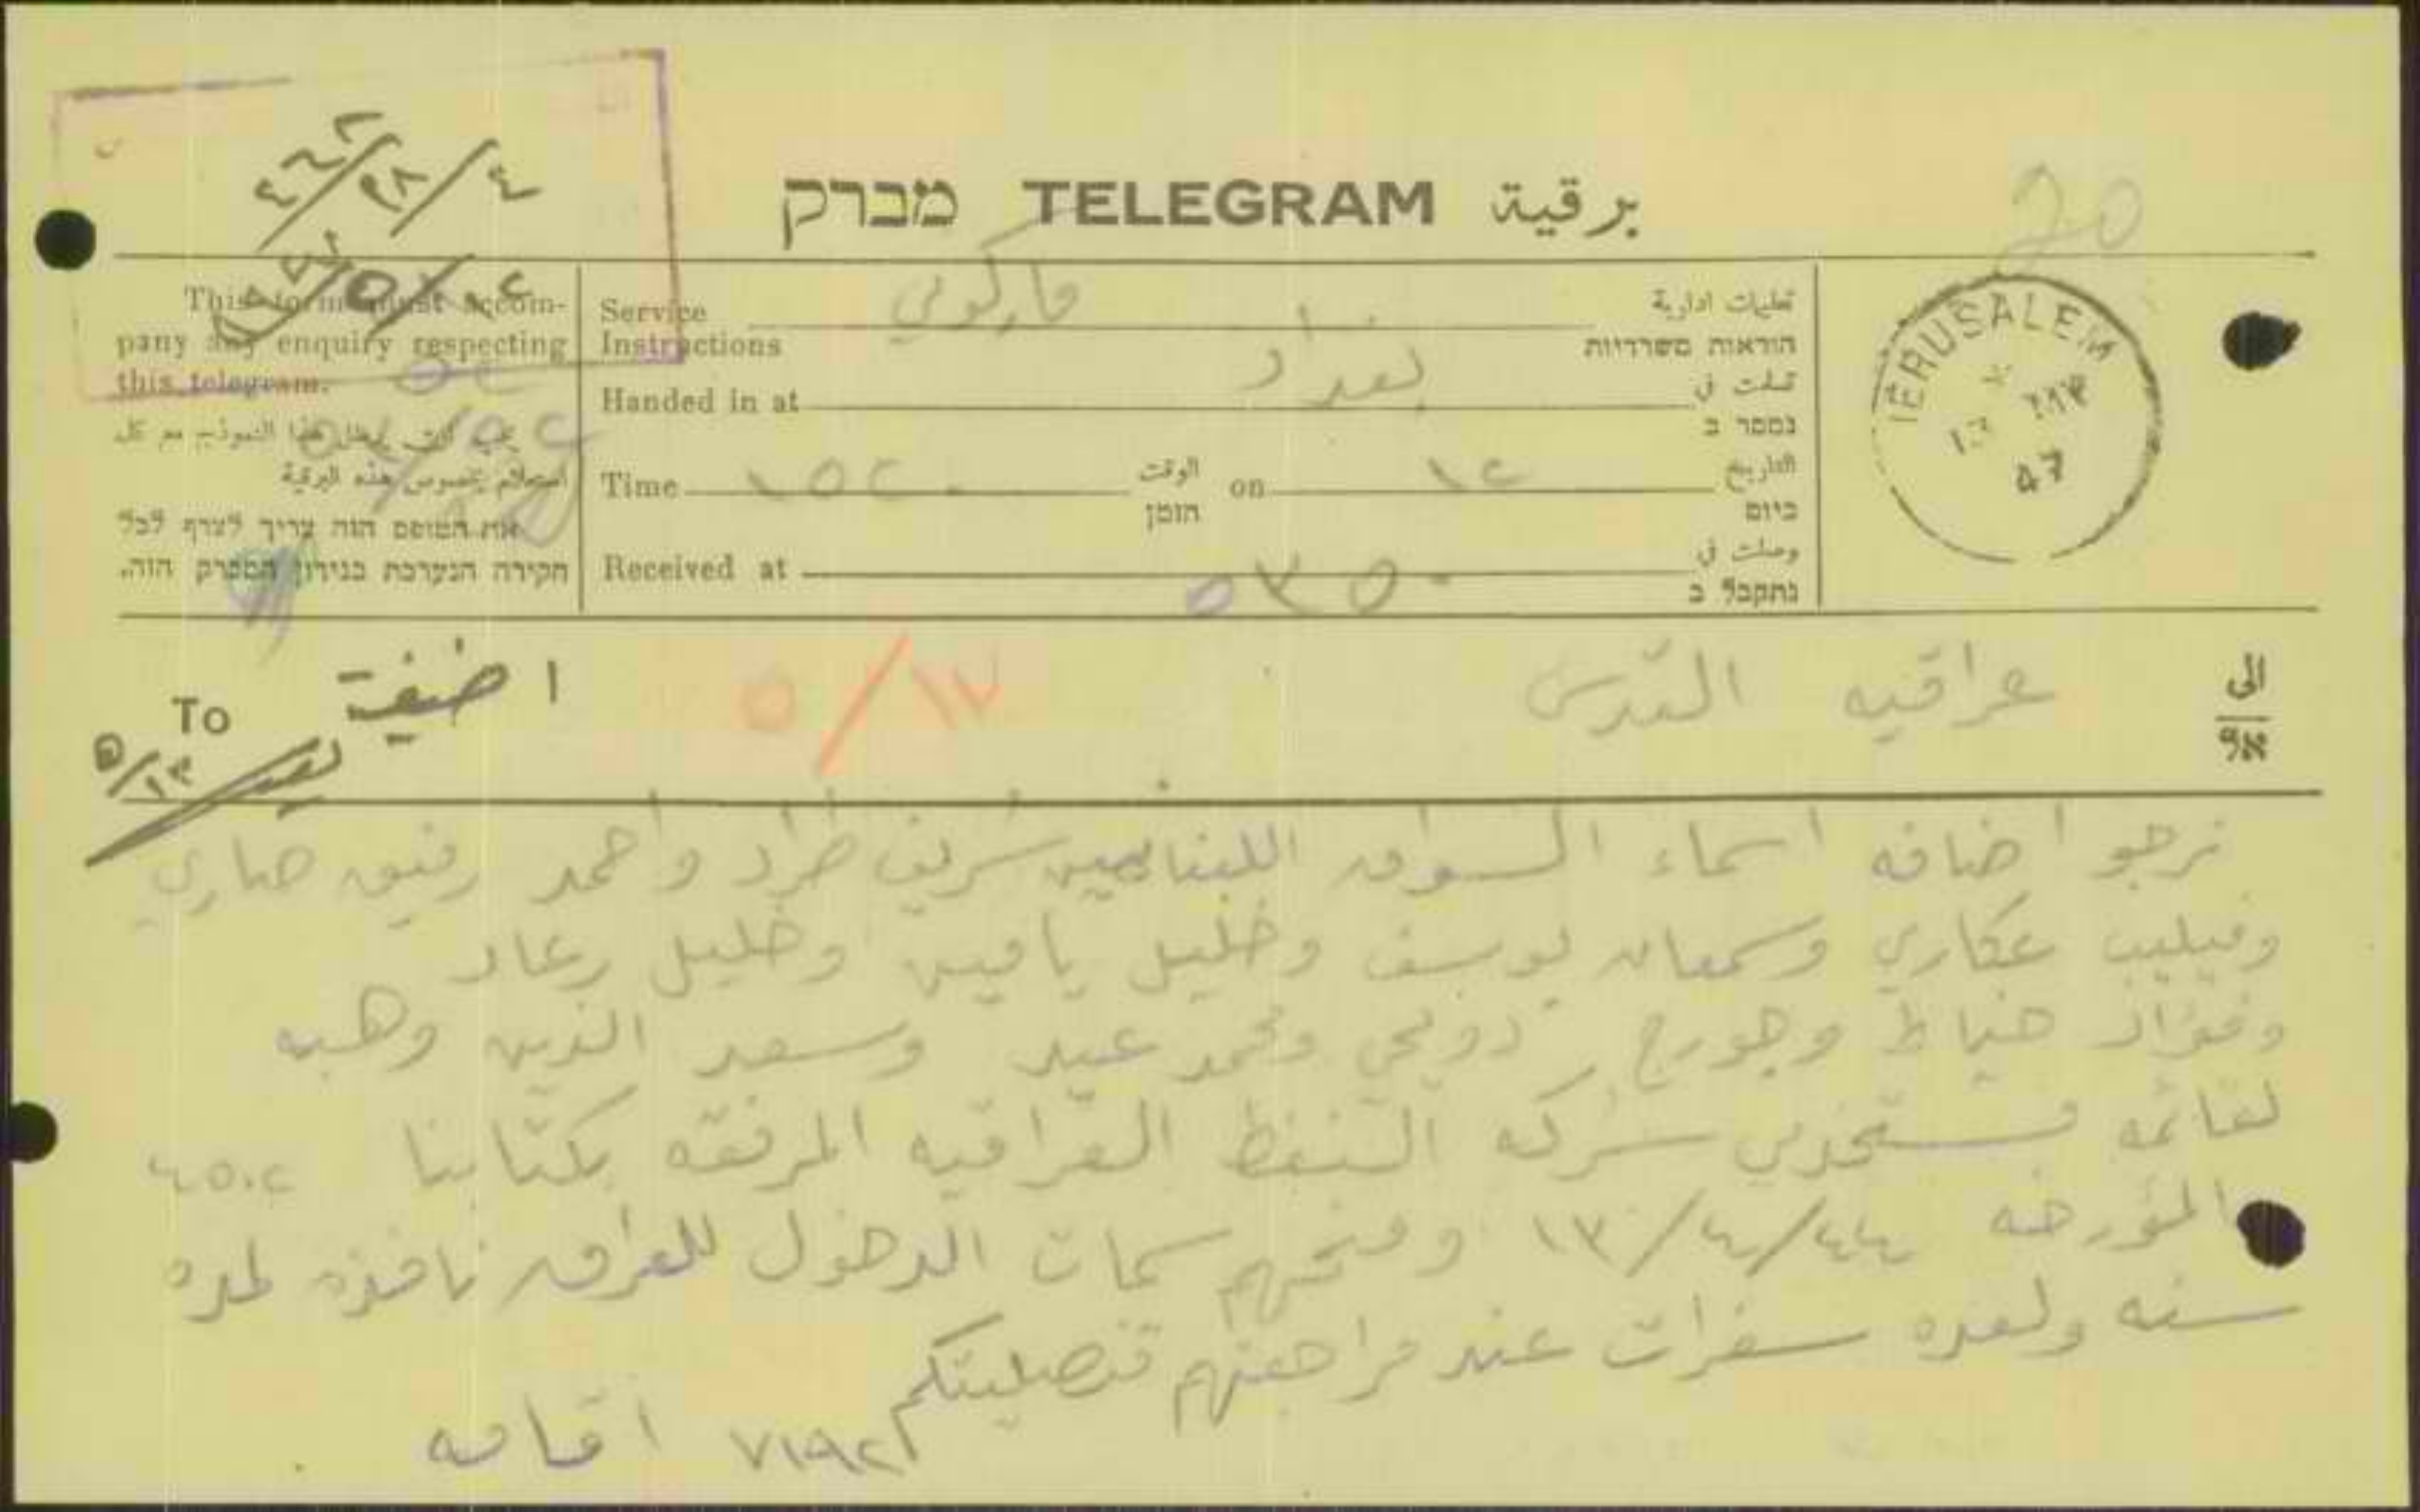 برقية TELEGRAM מברק
20
٤/٢٨/٤٦
This form must accom-
pany any enquiry respecting
this telegram.
يجب ان يرسل هذا النموذج مع كل
استعلام بخصوص هذه البرقية
את הטופס הזה צריך לצרף לכל
חקירה הנערכת בנידון המברק הזה.
Service
Instructions
ماركوني
تعليمات ادارية
הוראות משרדיות
Handed in at
بغداد
تسلمت في
נמסר ב
Time ١٥٢٠ الوقت
הזמן
on ١٢ التاريخ
ביום
Received at
وصلت في
נתקבל ב
JERUSALEM
13 MY
47
To
الى
אל
عراقيه القدس
٥/١٣
اضيفت
٥/١٣
نرجو اضافه اسماء السواق اللبنانيين شريف طراد واحمد رفيق صاري
وفيليب عكاري وسمعان يوسف وخليل يامين وخليل رعد
وفؤاد خياط وجورج دويحي ومحمد عيد وسعد الدين وهبه
لقائمه مستخدمي شركه النفط العراقيه المرفقه بكتابنا ٤٥٠٢
المؤرخه ١٣/٤/٤٤ ومنحهم سمات الدخول للعراق نافذه لمده
سنه ولعده سفرات عند مراجعتهم قنصليتكم
٧١٩٢ اقامه